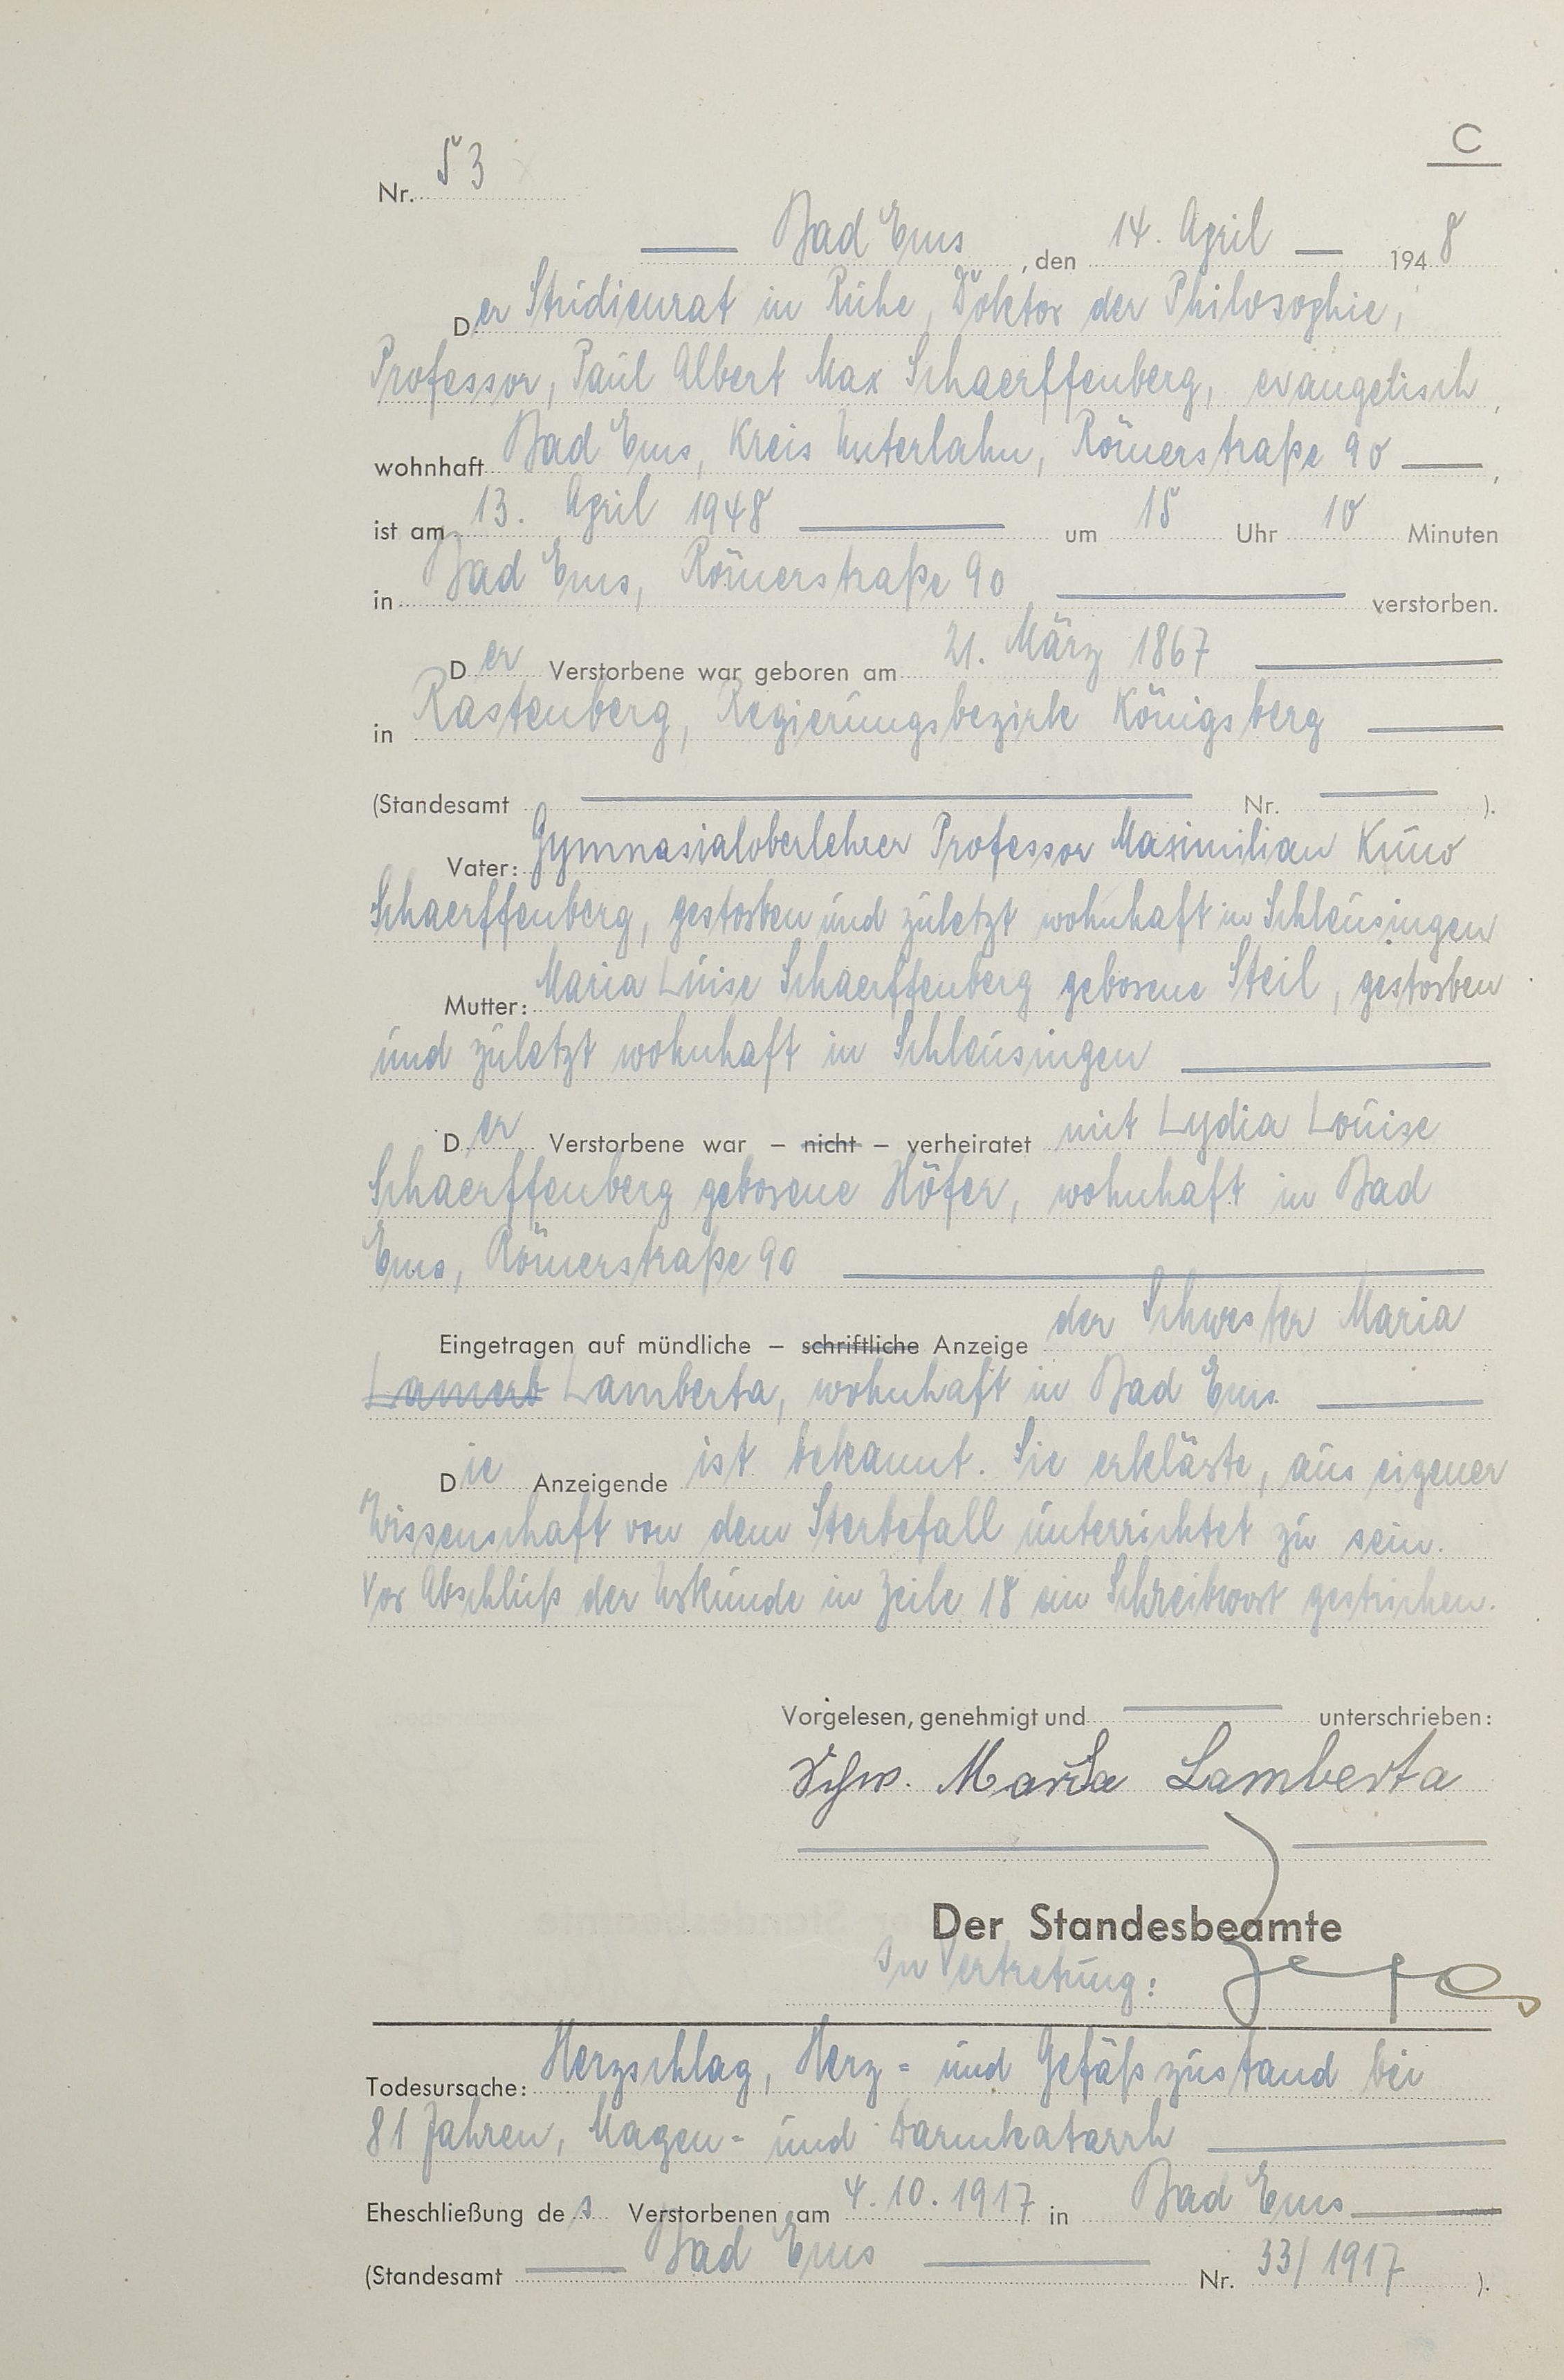 C
Nr. 53
Bad Ems, den 14. April 1948
Der Studienrat in Ruhe, Doktor der Philosophie,
Professor, Paul Albert Max Schaerffenberg, evangelisch,
wohnhaft Bad Ems, Kreis Unterlahn, Römerstraße 90,
ist am 13. April 1948 um 15 Uhr 10 Minuten
in Bad Ems, Römerstraße 90 verstorben.
Der Verstorbene war geboren am 21. März 1867
in Rastenberg, Regierungsbezirk Königsberg
(Standesamt Nr. ).
Vater: Gymnasialoberlehrer Professor Maximilian Kuno
Schaerffenberg, gestorben und zuletzt wohnhaft in Schleusingen
Mutter: Maria Luise Schaerffenberg geborene Steil, gestorben
und zuletzt wohnhaft in Schleusingen
Der Verstorbene war – nicht – verheiratet mit Lydia Louise
Schaerffenberg geborene Höfer, wohnhaft in Bad
Ems, Römerstraße 90
Eingetragen auf mündliche – schriftliche Anzeige der Schwester Maria
Lamerb Lamberta, wohnhaft in Bad Ems.
Die Anzeigende ist bekannt. Sie erklärte, aus eigener
Wissenschaft von dem Sterbefall unterrichtet zu sein.
Vor Abschluß der Urkunde in Zeile 18 ein Schreibwort gestrichen.
Vorgelesen, genehmigt und unterschrieben:
Schw. Maria Lamberta
Der Standesbeamte
In Vertretung:
Todesursache: Herzschlag, Herz- und Gefäßzustand bei
81 Jahren, Magen- und Darmkatarrh
Eheschließung des Verstorbenen am 4.10.1917 in Bad Ems
(Standesamt Bad Ems Nr. 33/1917 ).